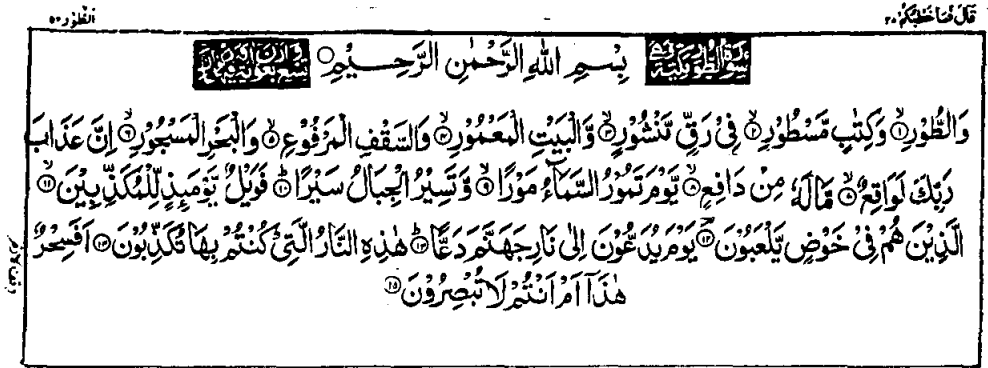 قَالَ فَمَا خَطْبُكُمْ ٢٧ الطُّوْر ٥٢
سُوْرَةُ الطُّوْرِ مَكِّيَّةٌ بِسْمِ اللهِ الرَّحْمٰنِ الرَّحِيْمِ
وَالطُّوْرِ ۝١ وَكِتٰبٍ مَّسْطُوْرٍ ۝٢ فِیْ رَقٍّ مَّنْشُوْرٍ ۝٣ وَّالْبَيْتِ الْمَعْمُوْرِ ۝٤ وَالسَّقْفِ الْمَرْفُوْعِ ۝٥ وَالْبَحْرِ الْمَسْجُوْرِ ۝٦ اِنَّ عَذَابَ
رَبِّكَ لَوَاقِعٌ ۝٧ مَّا لَهٗ مِنْ دَافِعٍ ۝٨ يَّوْمَ تَمُوْرُ السَّمَآءُ مَوْرًا ۝٩ وَّتَسِيْرُ الْجِبَالُ سَيْرًا ۝١٠ فَوَيْلٌ يَّوْمَئِذٍ لِّلْمُكَذِّبِيْنَ ۝١١
الَّذِيْنَ هُمْ فِیْ خَوْضٍ يَّلْعَبُوْنَ ۝١٢ يَوْمَ يُدَعُّوْنَ اِلٰى نَارِ جَهَنَّمَ دَعًّا ۝١٣ هٰذِهِ النَّارُ الَّتِیْ كُنْتُمْ بِهَا تُكَذِّبُوْنَ ۝١٤ اَفَسِحْرٌ
هٰذَآ اَمْ اَنْتُمْ لَا تُبْصِرُوْنَ ۝١٥